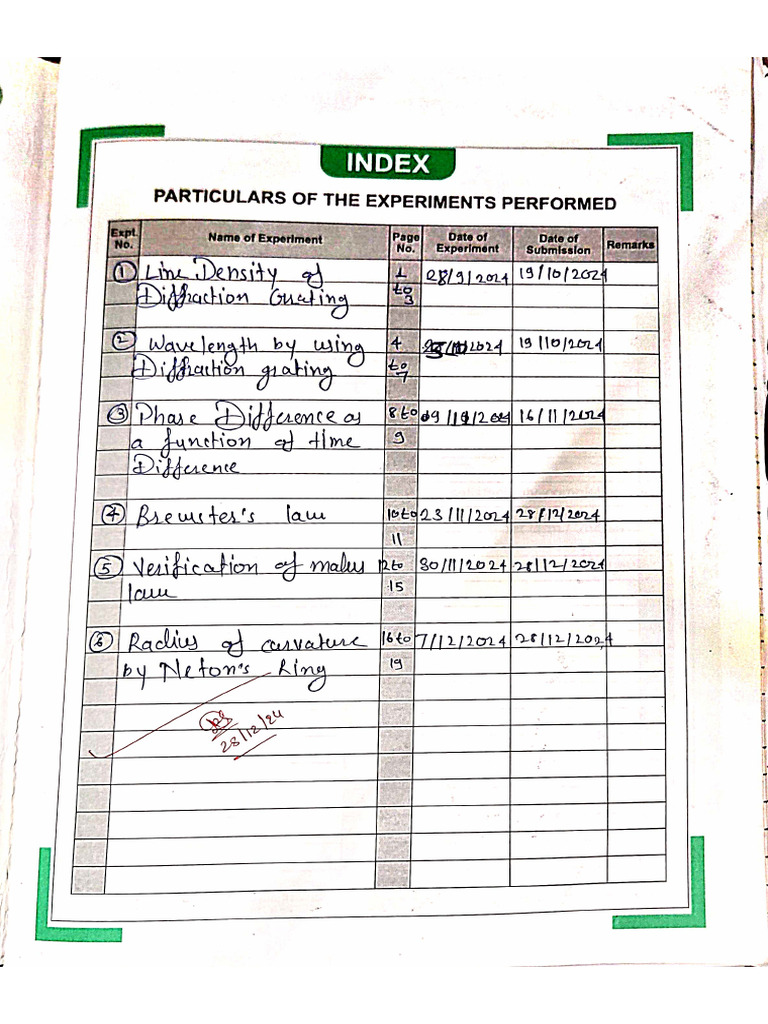 INDEX
PARTICULARS OF THE EXPERIMENTS PERFORMED
Expt. No. Name of Experiment Page No. Date of Experiment Date of Submission Remarks
1 Line Density of 1 28/9/2024 19/10/2024
Diffraction Grating to 3
2 Wavelength by using 4 /2024 19/10/2024
Diffraction grating to 7
3 Phase Difference as 8 to 09/11/2024 16/11/2024
a function of time 9
Difference
4 Brewster's law 10 to 23/11/2024 28/12/2024
11
5 Verification of malus 12 to 30/11/2024 28/12/2024
law 15
6 Radius of curvature 16 to 7/12/2024 28/12/2024
by Neton's Ring 19
28/12/24